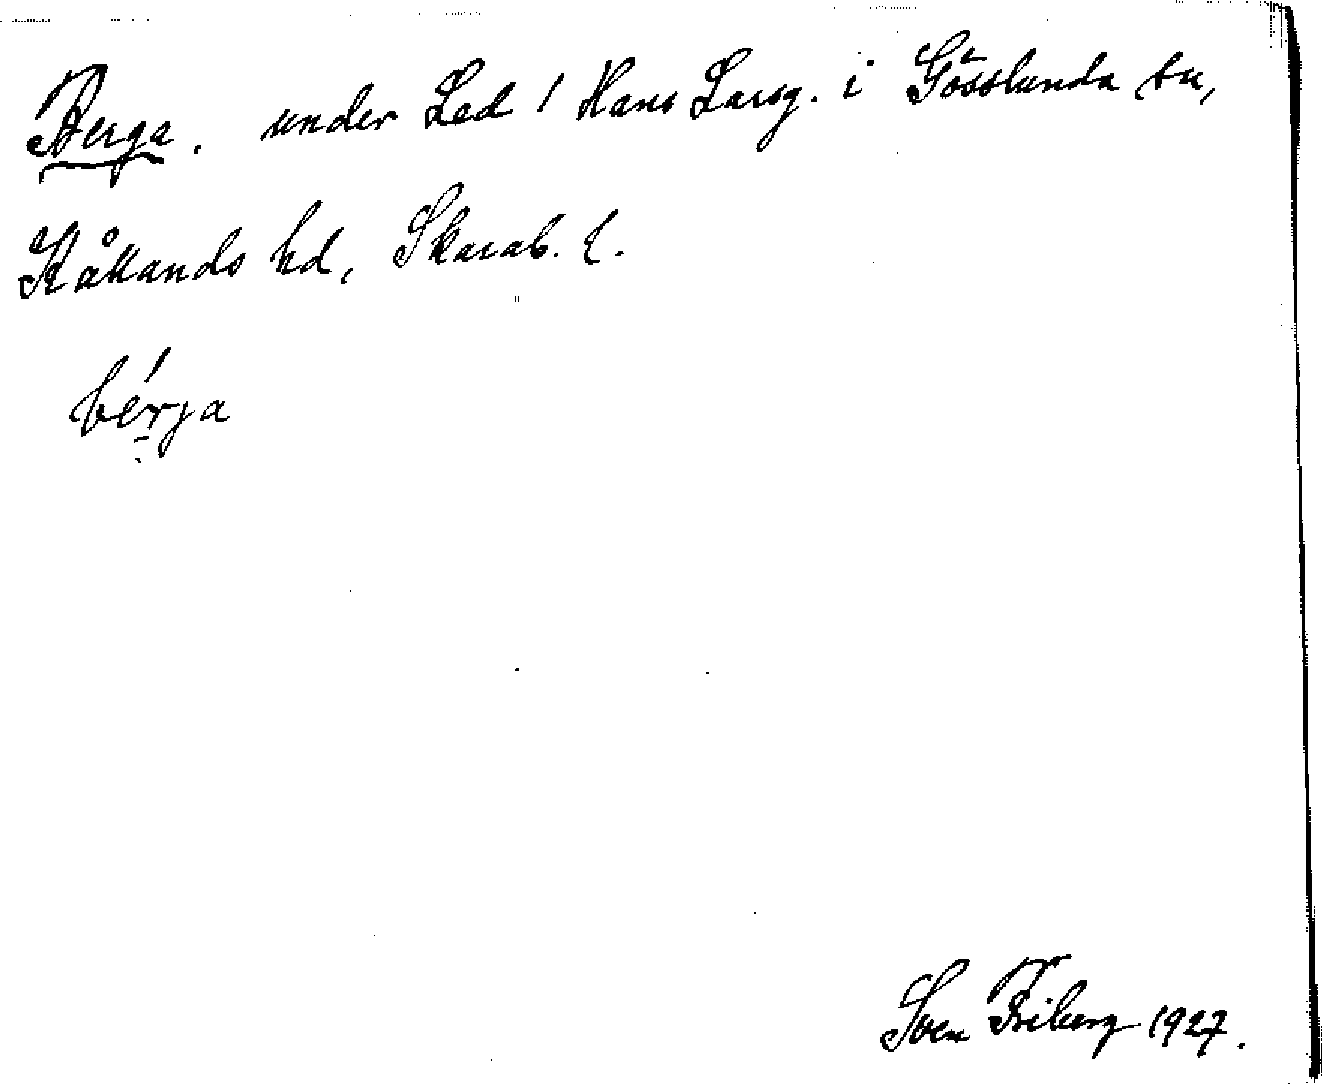 Berga. under Led / Hans Larsg. i Gösslunda sn,
Kållands hd, Skarab. l.
bérja
Sven Friberg 1927.